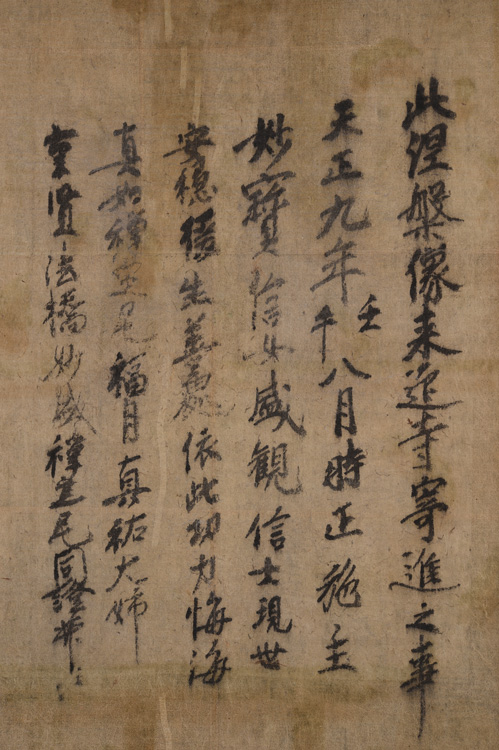 此涅槃像来迎寺寄進之事
天正九年壬午八月時正施主
妙寳信女盛観信士現世
安穏後生善處依此功力悔海
真如禅定尼福月真祐大姉
宗賢法橋妙盛禅定尼同證